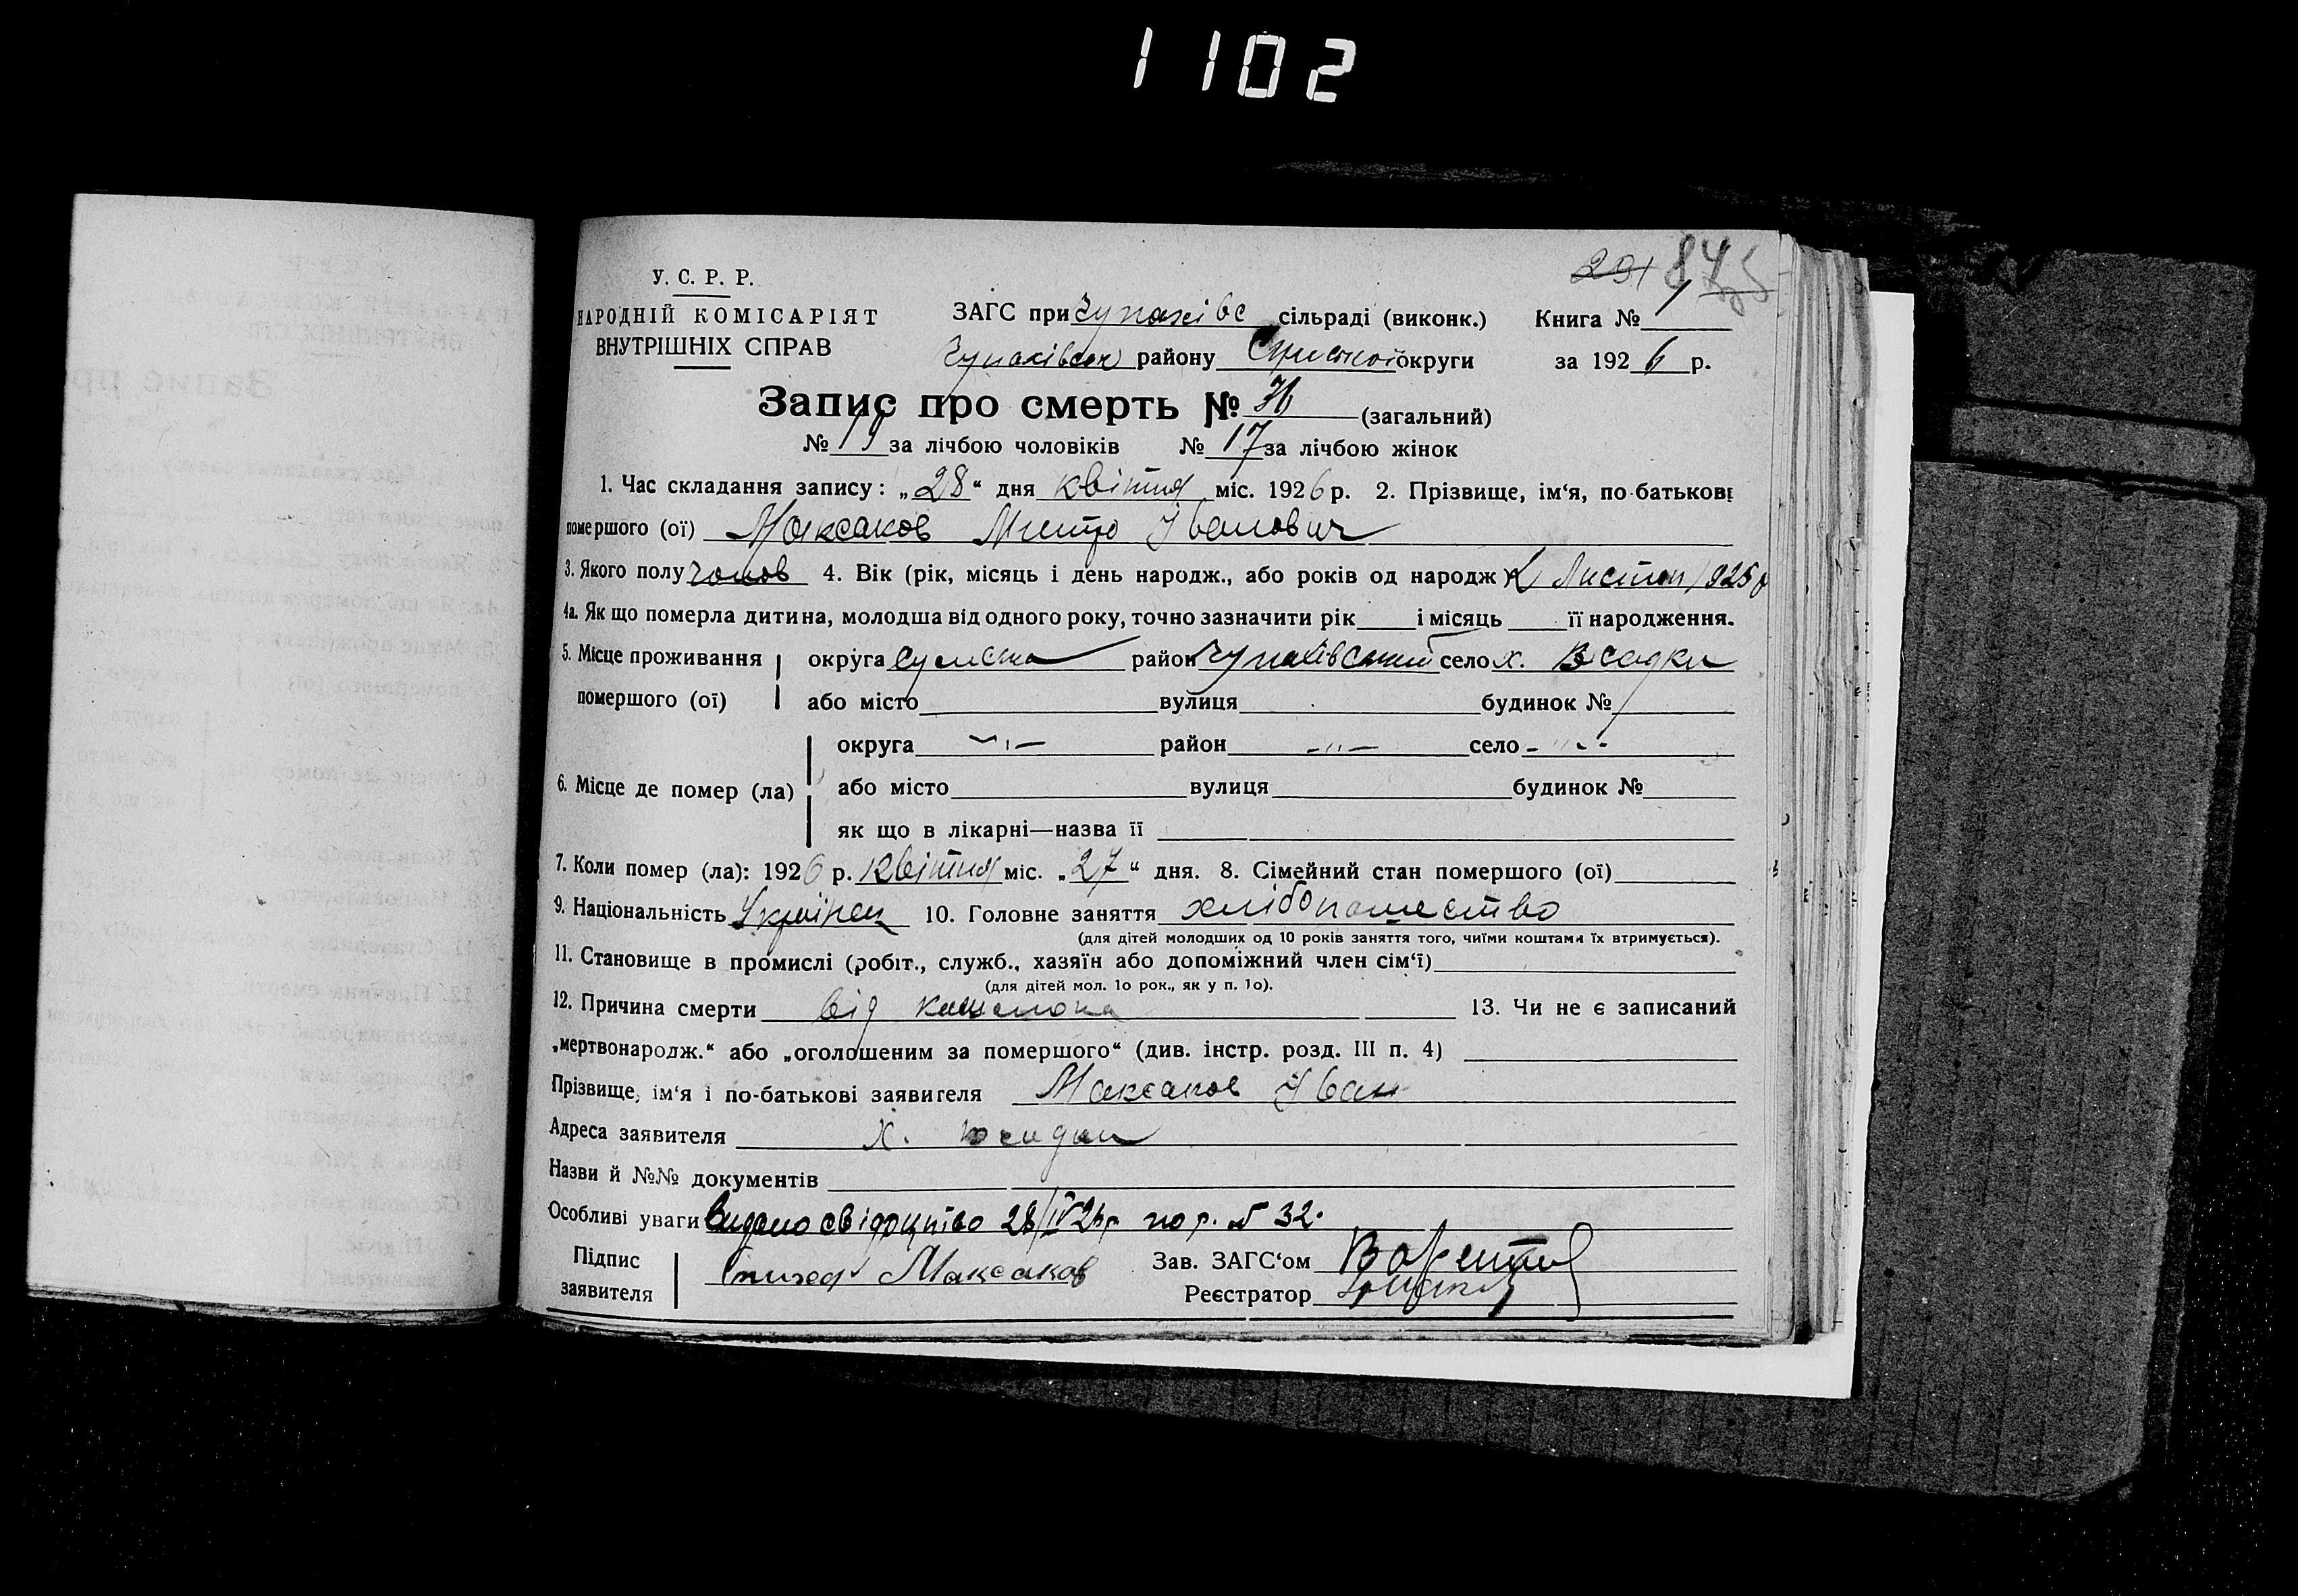 1102
231 84
У. С. Р. Р.
НАРОДНІЙ КОМІСАРІЯТ
ВНУТРІШНІХ СПРАВ
ЗАГС при Чупахівс сільраді (виконк.) Книга № 1
Чупахівськ району Сумської округи за 1926 р.
Запис про смерть № 36 (загальний)
№ 19 за лічбою чоловіків № 17 за лічбою жінок
1. Час складання запису: „28“ дня квітня міс. 1926 р. 2. Прізвище, ім‘я, по-батькові
помершого (ої) Максаков Митро Іванович
3. Якого полу чолов 4. Вік (рік, місяць і день народж., або років од народж.) Листоп 1925 р
4а. Як що померла дитина, молодша від одного року, точно зазначити рік і місяць її народження.
5. Місце проживання округа Сумська район Чупахівський село х.
помершого (ої) або місто вулиця будинок №
округа -„- район -„- село -„-
6. Місце де помер (ла) або місто вулиця будинок №
як що в лікарні—назва її
7. Коли помер (ла): 1926 р. Квітня міс. „27“ дня. 8. Сімейний стан помершого (ої)
9. Національність Українец 10. Головне заняття хлібопашество
(для дітей молодших од 10 років заняття того, чиїми коштами їх втримується).
11. Становище в промислі (робіт., служб., хазяїн або допоміжний член сім‘ї)
(для дітей мол. 1о рок., як у п. 1о).
12. Причина смерти від кашлюка 13. Чи не є записаний
„мертвонародж.“ або „оголошеним за помершого“ (див. інстр. розд. III п. 4)
Прізвище, ім‘я і по-батькові заявителя Максаков Іван
Адреса заявителя х.
Назви й №№ документів
Особливі уваги Видано свідоцтво 28/IV 26 р. по р. № 32.
Підпис Максаков Зав. ЗАГС‘ом
заявителя Реєстратор